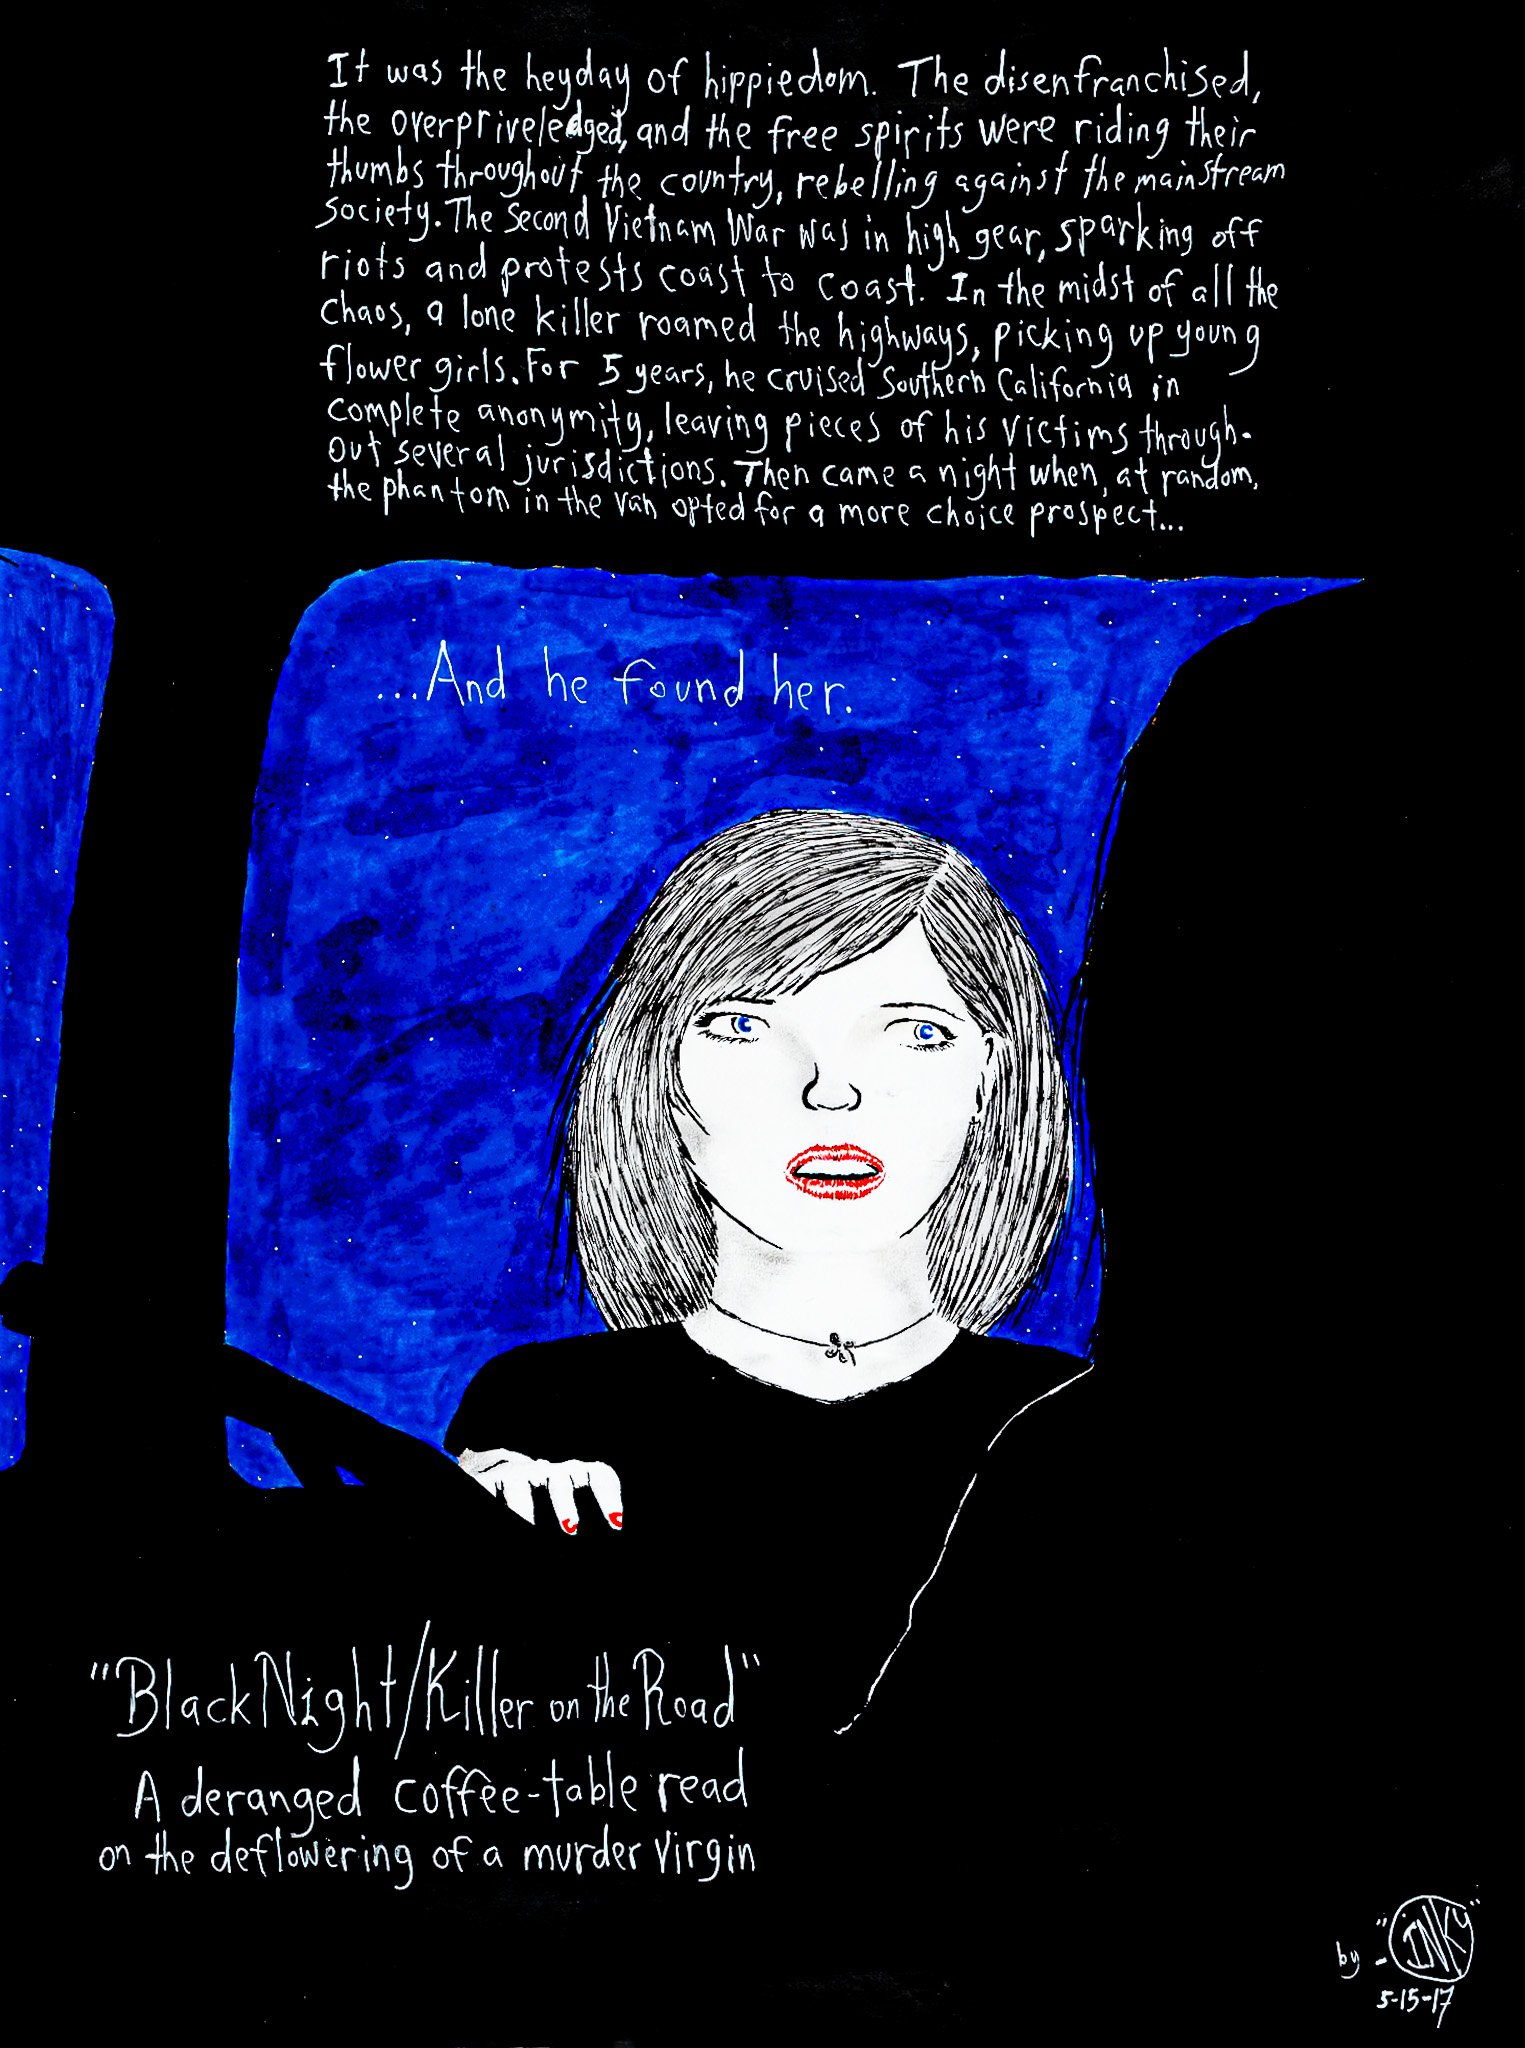 It was the heyday of hippiedom. The disenfranchised,
the overpriveledged, and the free spirits were riding their
thumbs throughout the country, rebelling against the mainstream
society. The Second Vietnam War was in high gear, sparking off
riots and protests coast to coast. In the midst of all the
chaos, a lone killer roamed the highways, picking up young
flower girls. For 5 years, he cruised Southern California in
complete anonymity, leaving pieces of his victims through-
out several jurisdictions. Then came a night when, at random,
the phantom in the van opted for a more choice prospect...
...And he found her.
"Black Night/Killer on the Road"
A deranged coffee-table read
on the deflowering of a murder virgin
by - "iNKy"
5-15-17